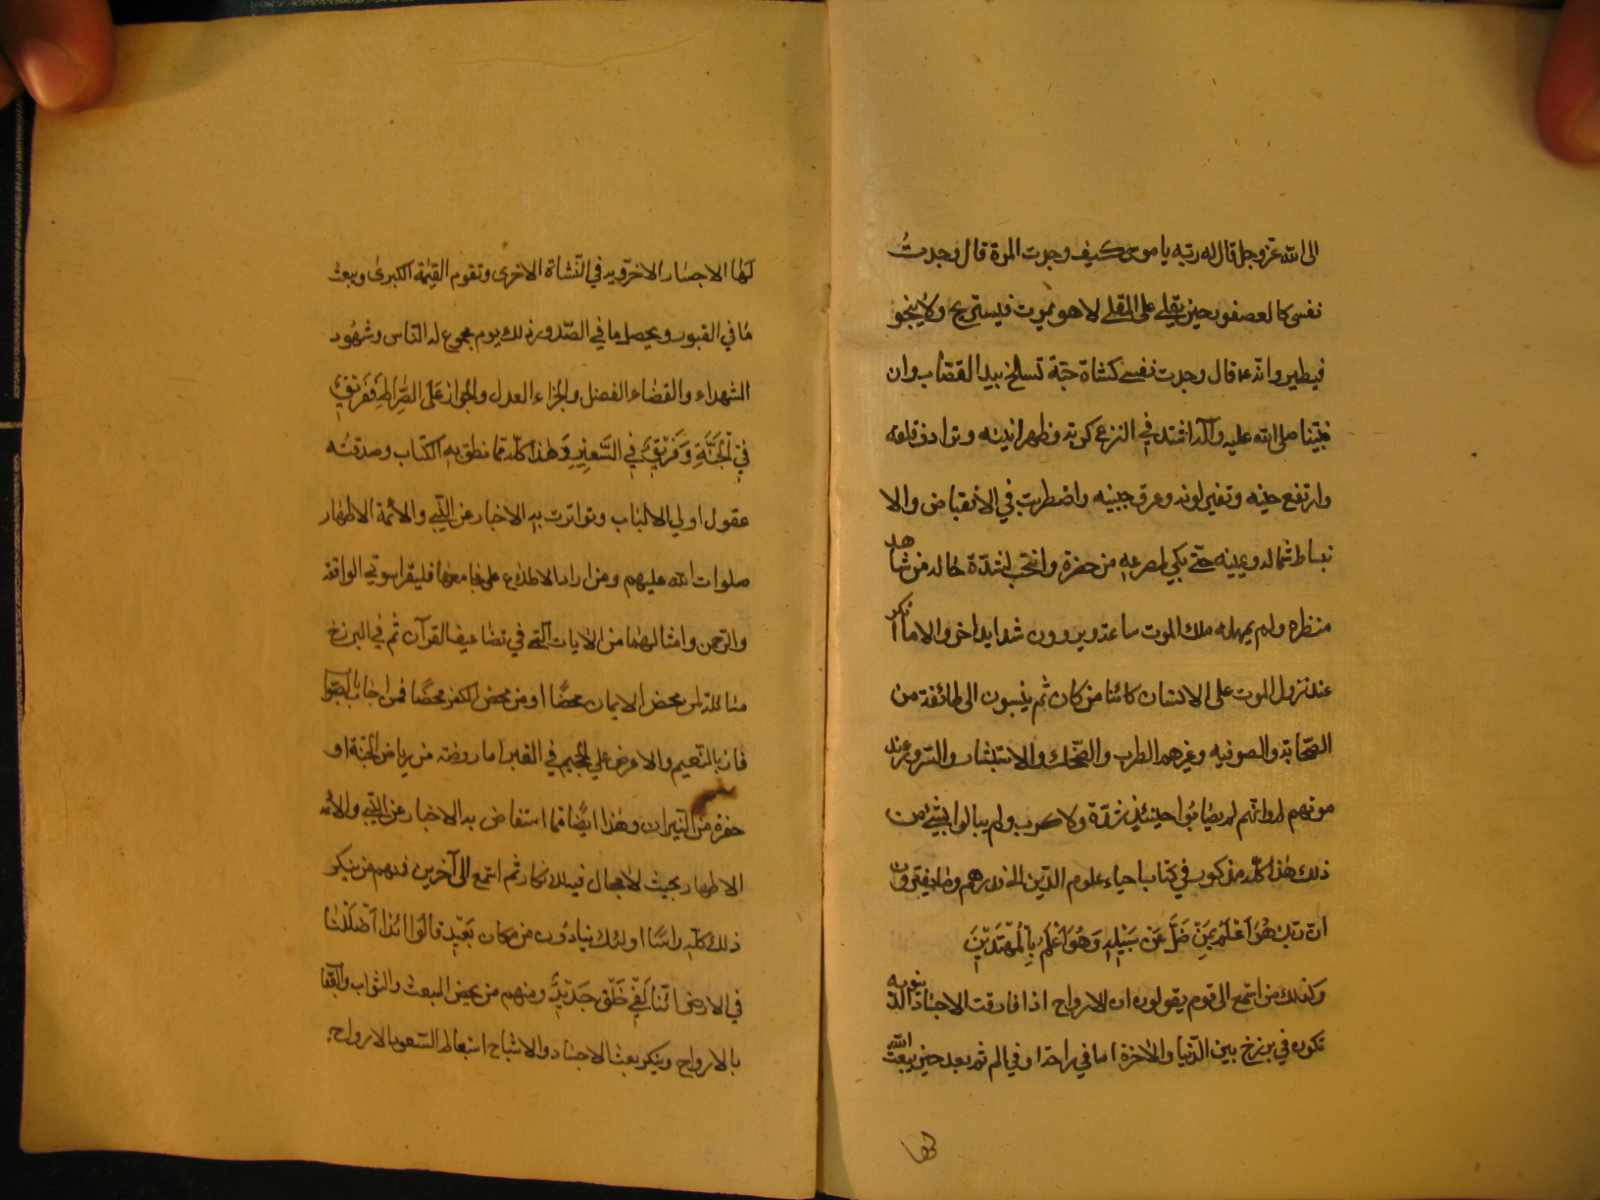 الى الله عز وجل قال له ربه يا موسى كيف وجدت الموت قال وجدت
نفسى كالعصفور حين يقلى على المقلى لا هو يموت فيستريح ولا ينجو
فيطير وانه قال وجدت نفسى كشاة حية تسلخ بيد القصاب وان
نبينا صلى الله عليه وآله اشتد في النزع كربه وظهر انينه وترادف قلقه
وارتفع حنينه وتغير لونه وعرق جبينه واضطربت في الانقباض والا
نبساط شماله ويمينه حتى بكى لمصرعه من حضره وانتحب لشدة حاله من شاهد
منظره ولم يمهله ملك الموت ساعة ويروون شدايد اخر والاما اكر
عند نزول الموت على الانسان كائنا من كان ثم ينسبون الى طائفة من
الصحابة والصوفيه وغيرهم الطرب والضحك والاستبشار والسرور عند
موتهم وانهم لم يصابوا حينئذ بشدة ولا كرب ولم يبالوا بشئ من
ذلك هذا كله مذكور في كتاب احياء علوم الدين فذرهم وما يفترون
ان ربك هو اعلم بمن ضل عن سبيله وهو اعلم بالمهتدين
وكذلك من استمع الى قوم يقولون ان الارواح اذا فارقت الاجساد
تكون في برزخ بين الدنيا والاخرة اما في راحة او في الم ثم بعد حين يبعث الله
لها
لها الاجساد الاخرويه في النشاة الاخرى وتقوم القيمة الكبرى ويبعث
ما في القبور ويحصل ما في الصدور ذلك يوم مجموع له الناس وشهود
الشهداء والقضاء الفصل والجزاء العدل والجواز على الصراط ففريق
في الجنة وفريق في السعير وهذا كله مما نطق به الكتاب وصدقته
عقول اولي الالباب وتواترت به الاخبار عن النبي والائمة الاطهار
صلوات الله عليهم ومن اراد الاطلاع على مجامعها فليقرا سورتي الواقعة
والرحمن وامثالهما من الايات التي في تضاعيف القرآن ثم في البرزخ
مسائلة لمن محض الايمان محضا او من محض الكفر محضا فمن اجاب بالصواب
فاز بالنعيم والا عرض على الجحيم في القبر اما روضة من رياض الجنة او
حفرة من النيران وهذا ايضا مما استفاض به الاخبار عن النبي والائمة
الاطهار بحيث لا مجال فيه للانكار ثم استمع الى آخرين فمنهم من ينكر
ذلك كله راسا اولئك ينادون من مكان بعيد قالوا ائذا اضللنا
في الارض ائنا لفي خلق جديد ومنهم من يخص البعث والثواب والعقاب
بالارواح وينكر بعث الاجساد والاشباح